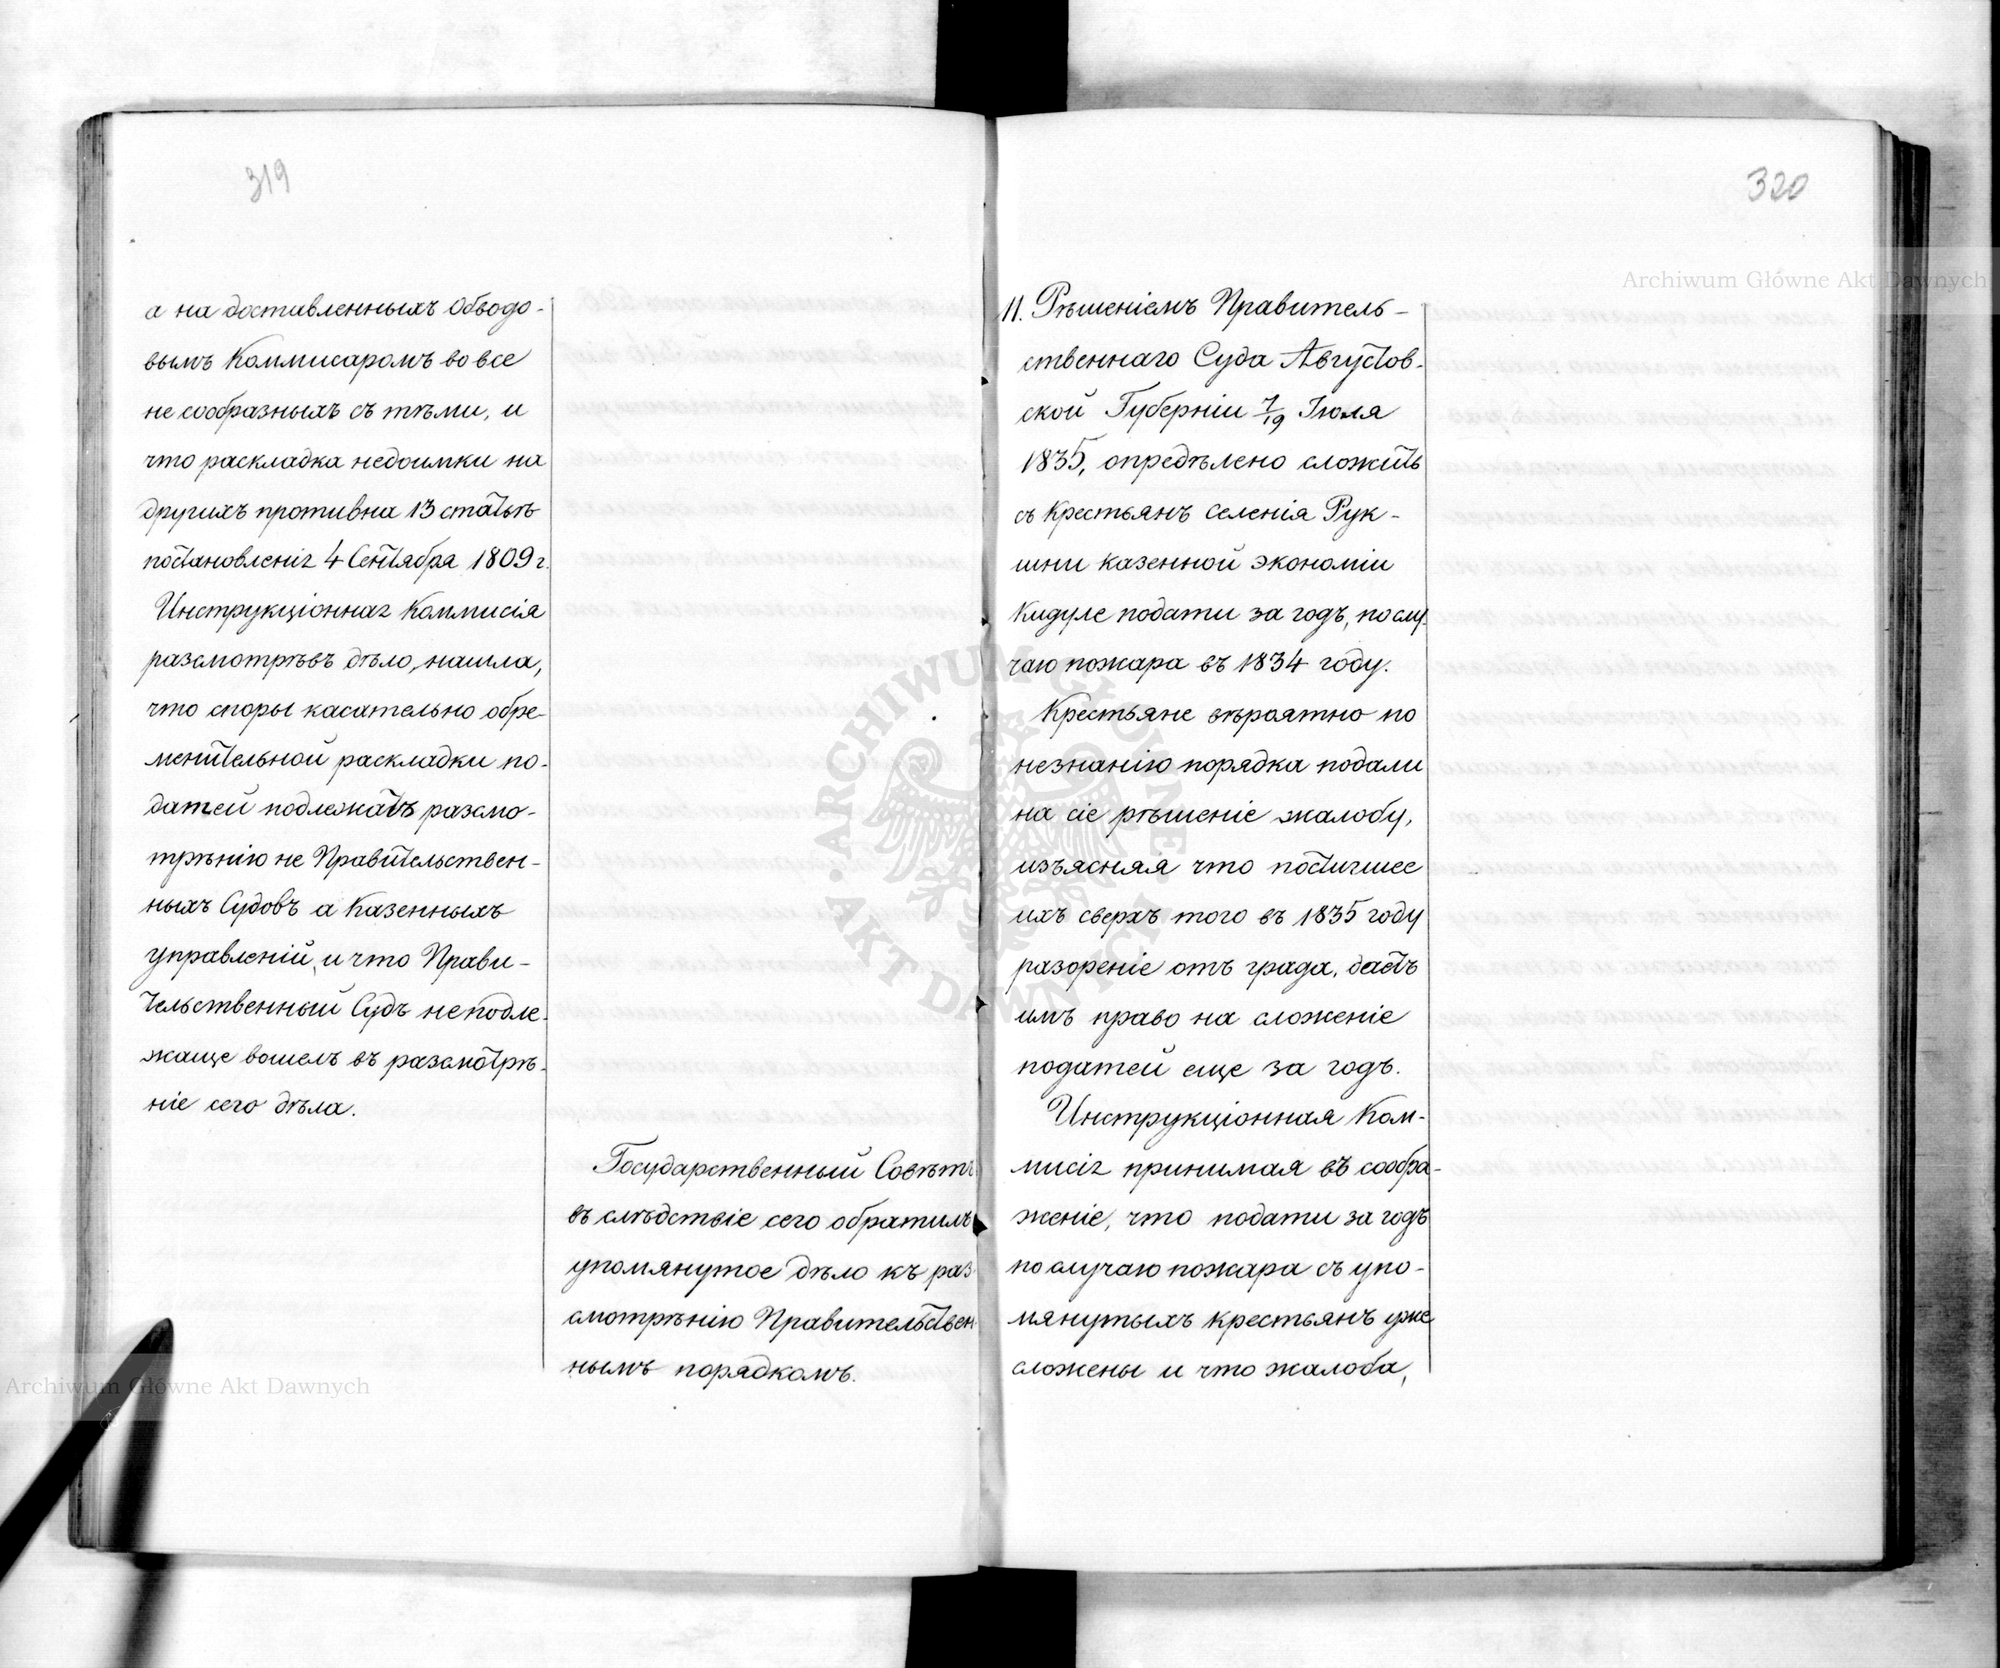 319
а на доставленныхъ Обводо-
вымъ Коммисаромъ вовсе
не сообразныхъ съ тѣми, и
что раскладка недоимки на
другихъ противна 13 статьѣ
постановленія 4 Сентября 1809 г.
Инструкціонная Коммисія
разсмотрѣвъ дѣло, нашла,
что споры касательно обре-
менительной раскладки по-
датей подлежатъ разсмо-
трѣнію не Правительствен-
ныхъ Судовъ а Казенныхъ
управленій, и что Прави-
тельственный Судъ неподле-
жаще вошелъ въ разсмотрѣ-
ніе сего дѣла.
Государственный Совѣтъ
въ слѣдствіе сего обратилъ
упомянутое дѣло къ раз
смотрѣнію Правительствен
нымъ порядкомъ.
320
11. Рѣшеніемъ Правитель-
ственнаго Суда Августов-
ской Губерніи 7/19 Іюля
1835, опредѣлено сложить
съ Крестьянъ селенія Рук-
шни казенной экономіи
Кидуле подати за годъ, послу-
чаю пожара въ 1834 году.
Крестьяне вѣроятно по
незнанію порядка подали
на сіе рѣшеніе жалобу,
изъясняя что постигшее
ихъ сверхъ того въ 1835 году
разореніе отъ града, дастъ
имъ право на сложеніе
податей еще за годъ.
Инструкціонная Ком-
мисія принимая въ сообра-
женіе, что подати за годъ
по случаю пожара съ упо-
мянутыхъ крестьянъ уже
сложены и что жалоба,
Archiwum Główne Akt Dawnych
Archiwum Główne Akt Dawnych
ARCHIWUM GŁÓWNE AKT DAWNYCH